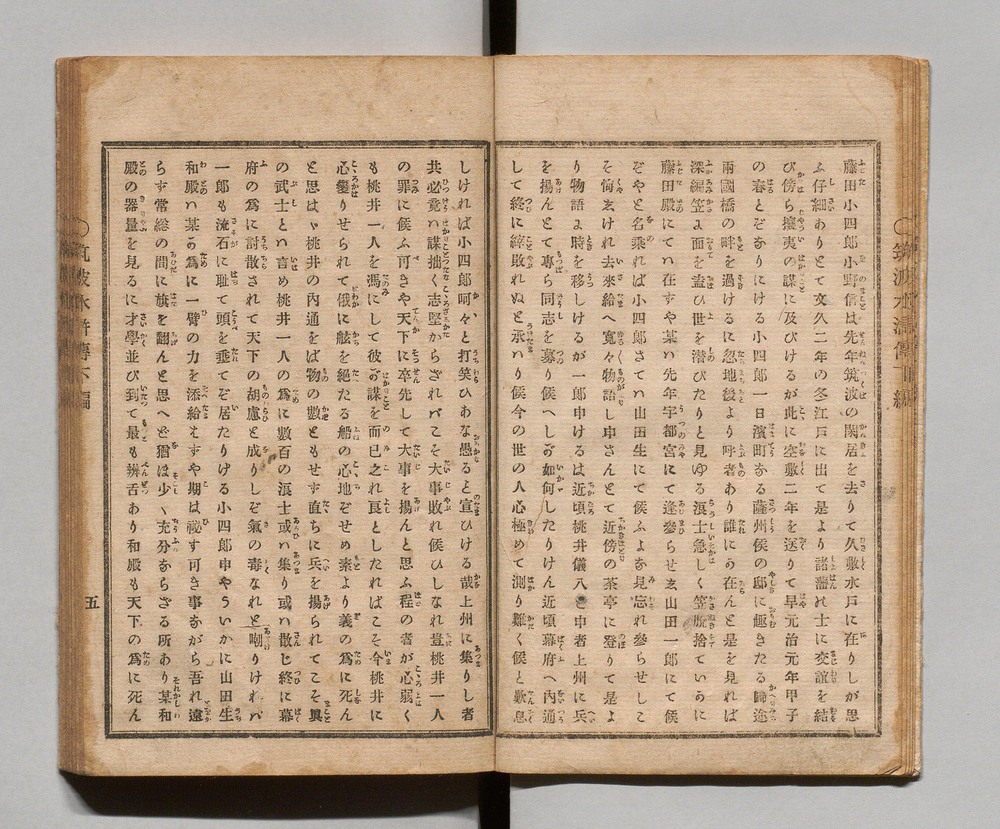 藤田小四郎小野信は先年筑波の閑居を去りて久敷水戸に在りしが思
ふ仔細ありとて文久二年の冬江戸に出て是より諸藩の士に交誼を結
び傍ら攘夷の謀に及びけるが此に空敷二年を送りて早元治元年甲子
の春とぞなりにける小四郎一日濱町なる薩州侯の邸に趣きたる歸途
兩國橋の畔を過けるに忽地後より呼者あり誰にの在んと是を見れば
深編笠よ面を盖ひ世を潜びたりと見ゆる浪士急しく笠脱捨ていかに
藤田殿にてハ在すや某ハ先年宇都宮にて逢參らせゑ山田一郎にて候
ぞやと名乗れば小四郎さてハ山田生にて候ふよな見忘れ參らせしこ
そ悔ゑけれ去來給へ寛々物語し申さんとて近傍の茶亭に登りて是よ
り物語よ時を移しけるが一郎申けるは近頃桃井儀八と申者上州に兵
を揚んとて專ら同志を募り候へしお如何したりけん近頃幕府へ內通
して終に縡敗れぬと承ハり候今の世の人心極めて測り難く候と歎息
しければ小四郎呵々と打笑ひあな愚ると宣ひける哉上州に集りし者
共必竟ハ謀拙く志堅からざれバこそ大事敗れ候ひしなれ豈桃井一人
の罪に候ふ可きや天下に卒先して大事を揚んと思ふ程の者が心弱く
も桃井一人を馮にして彼お謀を而已之れ㒵としたればこそ今桃井に
心變りせられて俄に舷を絕たる船の心地ぞせめ素より義の爲に死ん
と思はゞ桃井の內通をば物の數ともせず直ちに兵を揚られてこそ眞
の武士とハ言め桃井一人の爲に數百の浪士或ハ集り或ハ散じ終に幕
府の爲に討散されて天下の胡慮と成りしぞ氣の毒なれと嘲りけれバ
一郎も流石に耻て頭を垂てぞ居たりける小四郎申やういかに山田生
和殿ハ某の爲に一臂の力を添給はずや期は祕す可き事ながら吾れ遠
らず常総の間に旗を翻んと思へど猶ほ少しく充分ならざる所あり某和
殿の器量を見るに才學並び到て最も辨舌あり和殿も天下の爲に死ん
五
筑波水滸傳下編
筑波水滸傳下編